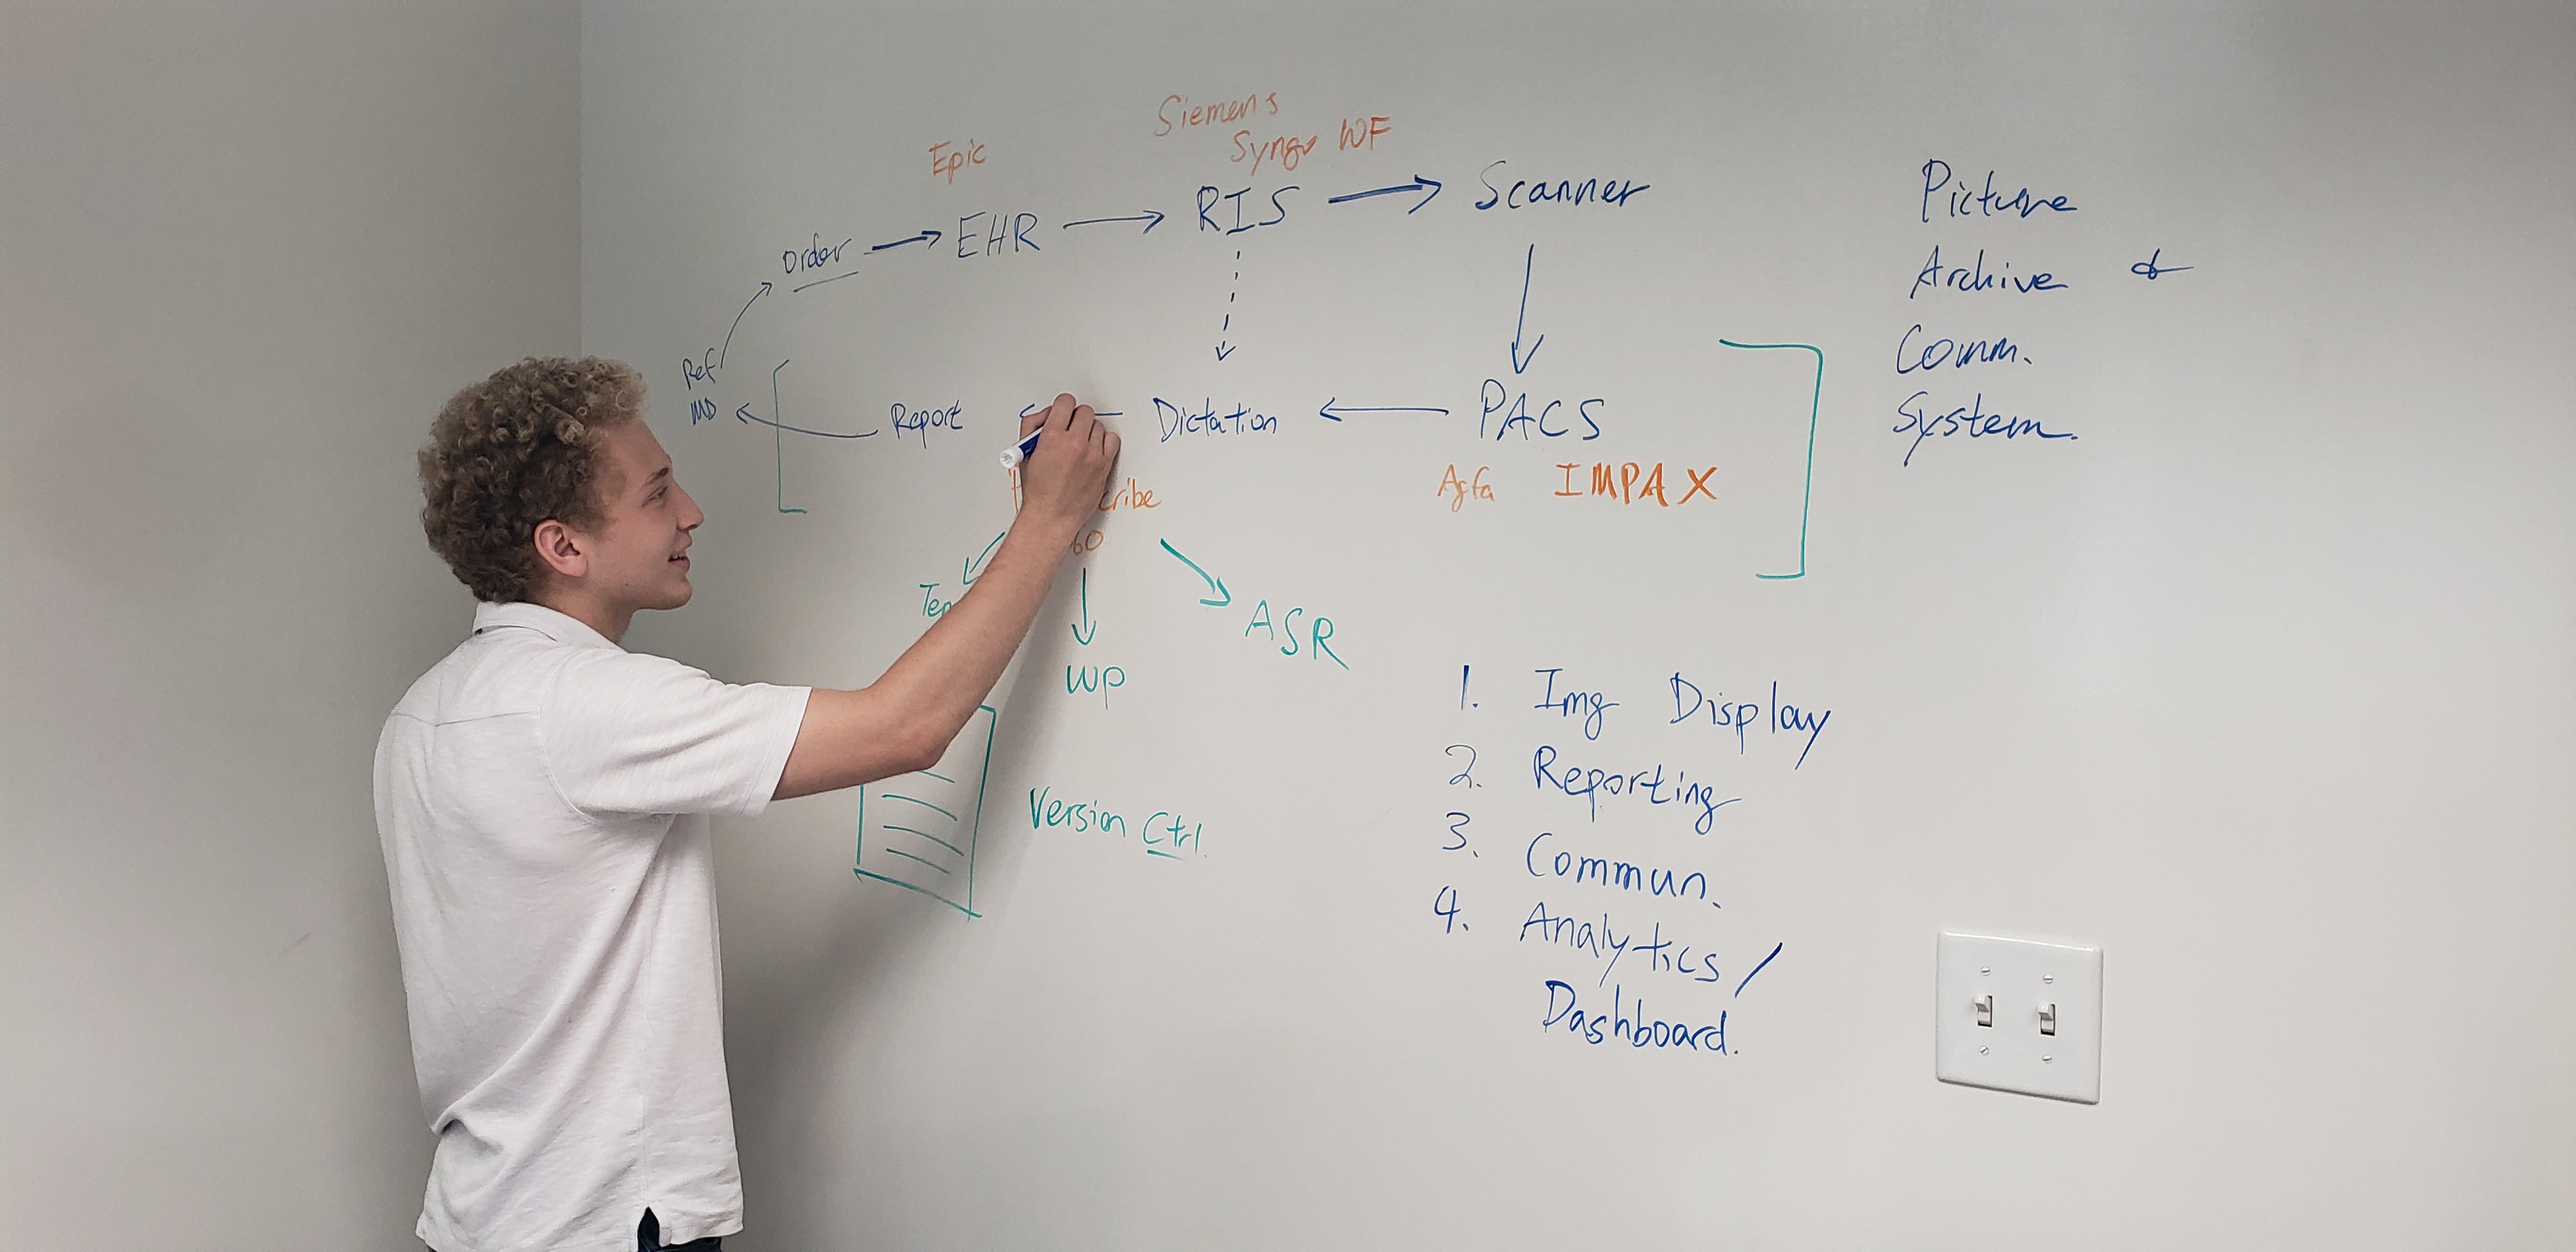 Siemens
Syngo WF
Epic
Order EHR RIS Scanner
Ref
MD
Report Dictation PACS
Agfa IMPAX
ASR
WP
Version Ctrl.
Picture
Archive &
Comm.
System.
1. Img Display
2. Reporting
3. Commun.
4. Analytics /
Dashboard.